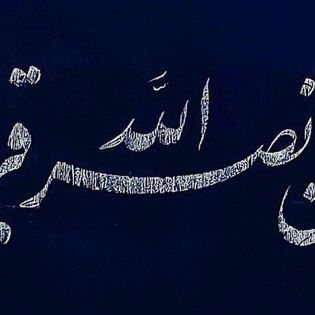 نصر الله